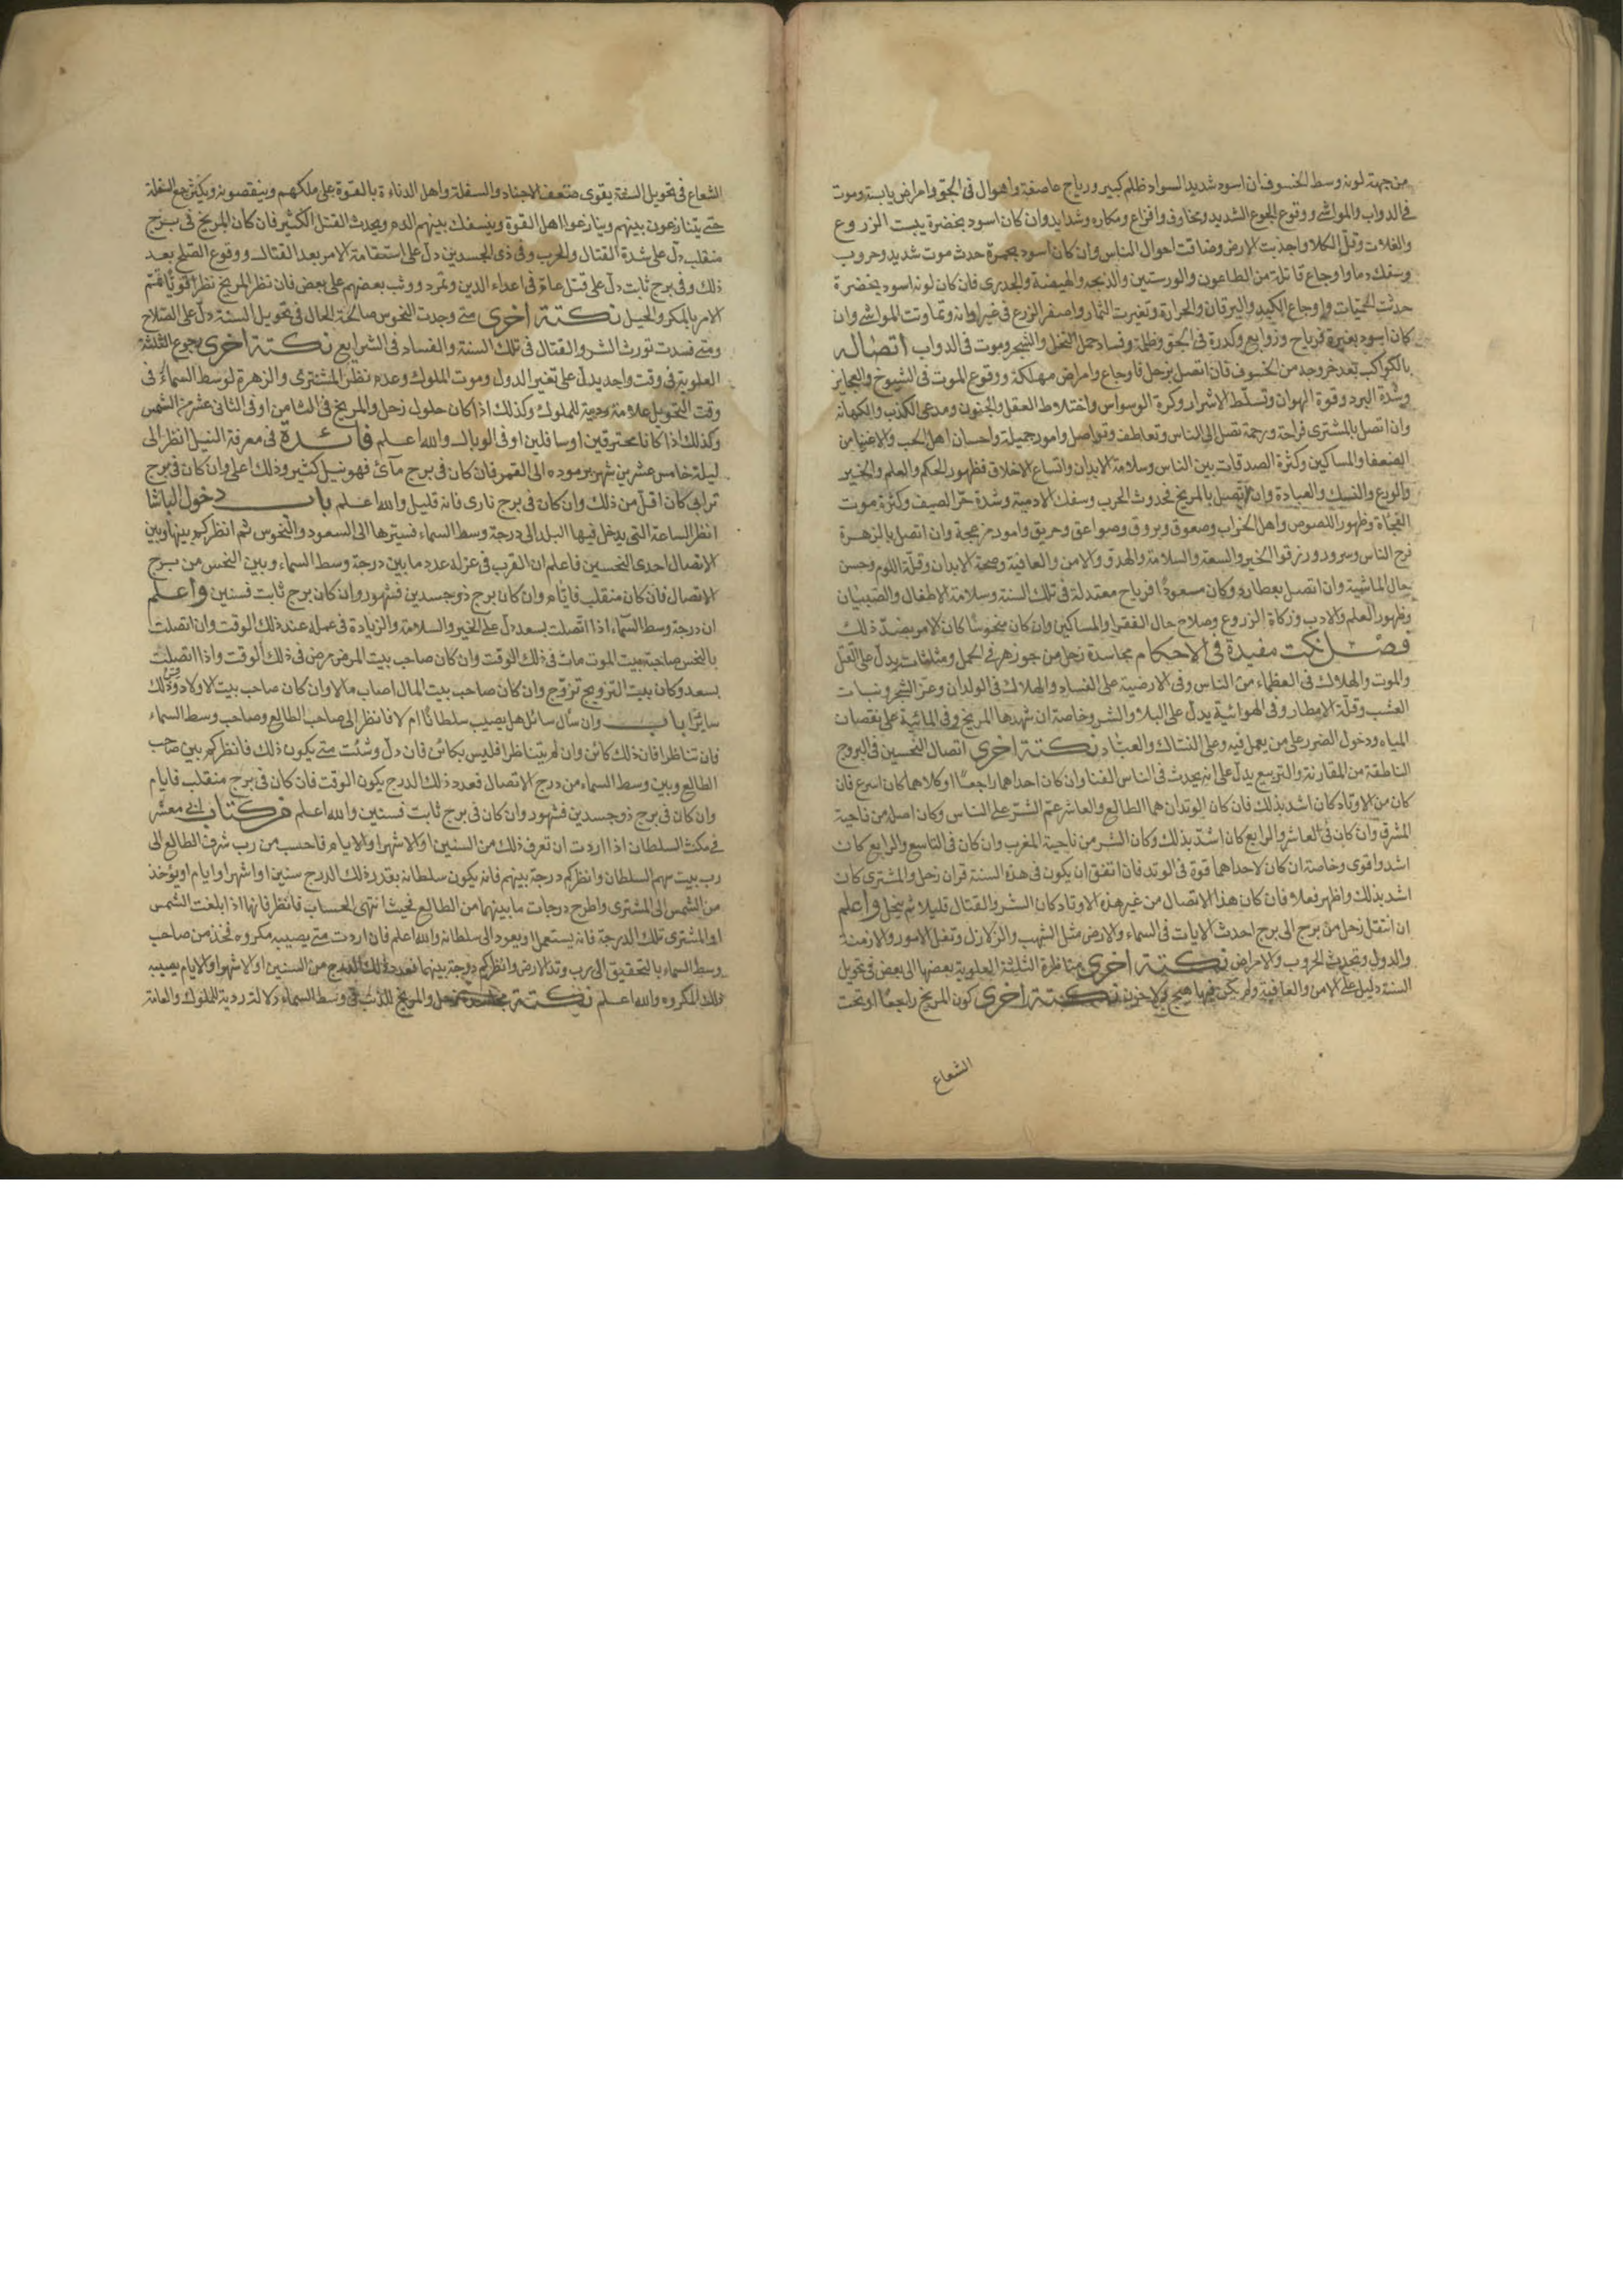 من جهة لونه وسط الخسوف ان اسود شديد السواد ظلم كبير ورياح عاصفة واهوال فى الجو وامراض يابسة وموت
فى الدواب والمواشى ووقوع الجوع الشديد ومخاوف وافزاع ومكاره وشدايد وان كان اسود بخضرة يبست الزروع
والغلات وقل الكلا واجدبت الارض وضاقت احوال الناس وان كان اسود بحمرة حدث موت شديد وحروب
وسفك دما واوجاع قاتلة من الطاعون والورستين والذبحه والهيضة والجدرى فان كان لونه اسود بخضرة
حدثت الحميات واوجاع الكبد واليرقان والحرارة وتغيرت الثمار واصفر الزرع فى غير اوانه وتماوتت المواشى وان
كان اسود بغبرة فرياح وزوابع وكدرة فى الجو وظلمة وفساد حمل النخل والشجر وموت فى الدواب اتصاله
بالكواكب بعد خروجه من الخسوف فان اتصل بزحل فاوجاع وامراض مهلكة ووقوع الموت فى الشيوخ والعجايز
وشدة البرد وقوة الهوان وتسلط الاشرار وكرة الوسواس واختلاط العقل والجنون ومدعى الكذب والكهانة
وان اتصل بالمشترى فراحة ورحمة تصل الى الناس وتعاطف وتواصل وامور جميلة واحسان اهل الحب والاغنيا من
الضعفا والمساكين وكثرة الصدقات بين الناس وسلامة الابدان واتساع الاخلاق وظهور الحكم والعلم والخير
والورع والنسك والعبادة وان اتصل بالمريخ فحدوث الحرب وسفك الادمية وشدة حر الصيف وكثرة موت
الفجاة وظهور اللصوص واهل الخراب وصعوق وبروق وصواعق وحريق وامور مزعجة وان اتصل بالزهرة
فرح الناس وسرور ورزقوا الخير والسعة والسلامة والهدو والامن والعافية وصحة الابدان وقلة اللوم وحسن
حال الماشية وان اتصل بعطارد وكان مسعودا فرياح معتدلة فى تلك السنة وسلامة الاطفال والصبيان
وظهور العلم والادب وزكاة الزروع وصلاح حال الفقرا والمساكين وان كان منحوسا كان الامر بضد ذلك
فصل نكت مفيدة فى الاحكام مجاسدة زحل من جوزهر فى الحمل ومثلثات يدل على القتل
والموت والهلاك فى العظماء من الناس وفى الارضية على الفساد والهلاك فى الولدان وعز الشجر ونبات
العشب وقلة الامطار وفى الهوائية يدل على البلا والشر وخاصة ان شهدها المريخ وفى المائية على نقصان
المياه ودخول الضرر على من يعمل فيه وعلى النساك والعباد نكتة اخرى اتصال النحسين فى البروج
الناطقة من المقارنة والتربيع يدل على انه يحدث فى الناس الفنا وان كان احداهما راجعا او كلاهما كان اسرع فان
كان من الاوتاد كان اشد بذلك فان كان الوتدان هما الطالع والعاشر عم الشر على الناس وكان اصل من ناحية
المشرق وان كان فى العاشر والرابع كان اشد بذلك وكان الشر من ناحية المغرب وان كان فى التاسع والرابع كان
اشد واقوى وخاصة ان كان لاحداهما قوة فى الوتد فان اتفق ان يكون فى هذه السنة قران زحل والمشترى كان
اشد بذلك واظهر فعلا فان كان هذا الاتصال من غير هذه الاوتاد كان الشر والقتال قليلا ثم ينحل واعلم
ان انتقل زحل من برج الى برج احدث الايات فى السماء والارض مثل الشهب والزلازل وتنقل الامور والازمنة
والدول وتحدث الحروب والامراض نكتة اخرى مناظرة الثلثة العلوية بعضها الى بعض فى تحويل
السنة دليل على الامن والعافية ولم يكن فيها هيج ولا حزن نكتة اخرى كون المريخ راجعا او تحت
الشعاع
الشعاع فى تحويل السنة يقوى ضعف الاجناد والسفلة واهل الدناءة بالقوة على ملكهم وينقصونه ويكثر السفلة
حتى يتنازعون بينهم وينازعوا اهل القوة وينسفك بينهم الدم ويحدث القتل الكثير فان كان المريخ فى برج
منقلب دل على شدة القتال والحرب وفى ذى الجسدين دل على استقامة الامر بعد القتال ووقوع الصلح بعد
ذلك وفى برج ثابت دل على قتل عام فى اعداء الدين وتمرد ووثب بعضهم على بعض فان نظر المريخ نظرا قويا تم
الامر بالمكر والحيل نكتة اخرى متى وجدت النحوس صالحة الحال فى تحويل السنة دل على الصلاح
ومتى فسدت تورث الشر والقتال فى تلك السنة والفساد فى الشرايع نكتة اخرى رجوع الثلثة
العلوية فى وقت واحد يدل على تغير الدول وموت الملوك وعدم نظر المشترى والزهرة لوسط السماء فى
وقت التحويل علامة ردية للملوك وكذلك اذا كان حلول زحل والمريخ فى الثامن او فى الثانى عشر من الشمس
وكذلك اذا كانا محترقين او سافلين او فى الوبال والله اعلم فائدة فى معرفة النيل انظر الى
ليلة خامس عشرين شهر برموده الى القمر فان كان فى برج مائى فهو نيل كثير وذلك اعلى وان كان فى برج
ترابى كان اقل من ذلك وان كان فى برج نارى فانه قليل والله اعلم باب دخول الباشا
انظر الساعة التى يدخل فيها البلد الى درجة وسط السماء فسيرها الى السعود والنحوس ثم انظر كم بينها وبين
الاتصال احدى النحسين فاعلم ان القرب فى عزله عدد ما بين درجة وسط السماء وبين النحس من برج
الاتصال فان كان منقلب فايام وان كان برج ذو جسدين فشهور وان كان برج ثابت فسنين واعلم
ان درجة وسط السماء اذا اتصلت بسعد دل على الخير والسلامة والزيادة فى عمله عند ذلك الوقت وان اتصلت
بالنحس صاحبة بيت الموت مات فى ذلك الوقت وان كان صاحب بيت المرض مرض فى ذلك الوقت واذا اتصلت
بسعد وكان بيت التزويج تزوج وان كان صاحب بيت المال اصاب مالا وان كان صاحب بيت الاولاد وكذلك
سايرا باب وان سأل سائل هل يصيب سلطانا ام لا فانظر الى صاحب الطالع وصاحب وسط السماء
فان تناظرا فان ذلك كائن وان لم يتناظرا فليس بكائن فان دل وشئت متى يكون ذلك فانظر كم بين صاحب
الطالع وبين وسط السماء من درج الاتصال فعدد ذلك الدرج يكون الوقت فان كان فى برج منقلب فايام
وان كان فى برج ذو جسدين فشهور وان كان فى برج ثابت فسنين والله اعلم من كتاب ابى معشر
فى مكث السلطان اذا اردت ان تعرف ذلك من السنين او الاشهر او الايام فاحسب من رب شرف الطالع الى
رب بيت سهم السلطان وانظر كم درجة بينهم فانه يكون سلطانه بقدر ذلك الدرج سنين او اشهر او ايام او يؤخذ
من الشمس الى المشترى واطرح درجات ما بينهما من الطالع فحيث انتهى الحساب فانظر فانها اذا بلغت الشمس
او المشترى تلك الدرجة فانه يستعمل او يعود الى سلطانه والله اعلم فان اردت متى يصيبه مكروه فخذ من صاحب
وسط السماء بالتحقيق الى رب وتد الارض وانظر كم درجة بينهما فعدد ذلك الدرج من السنين او الاشهر او الايام يصيبه
ذلك المكروه والله اعلم نكتة مجاسدة زحل والمريخ للذنب فى وسط السماء دلالة ردية للملوك والعامة